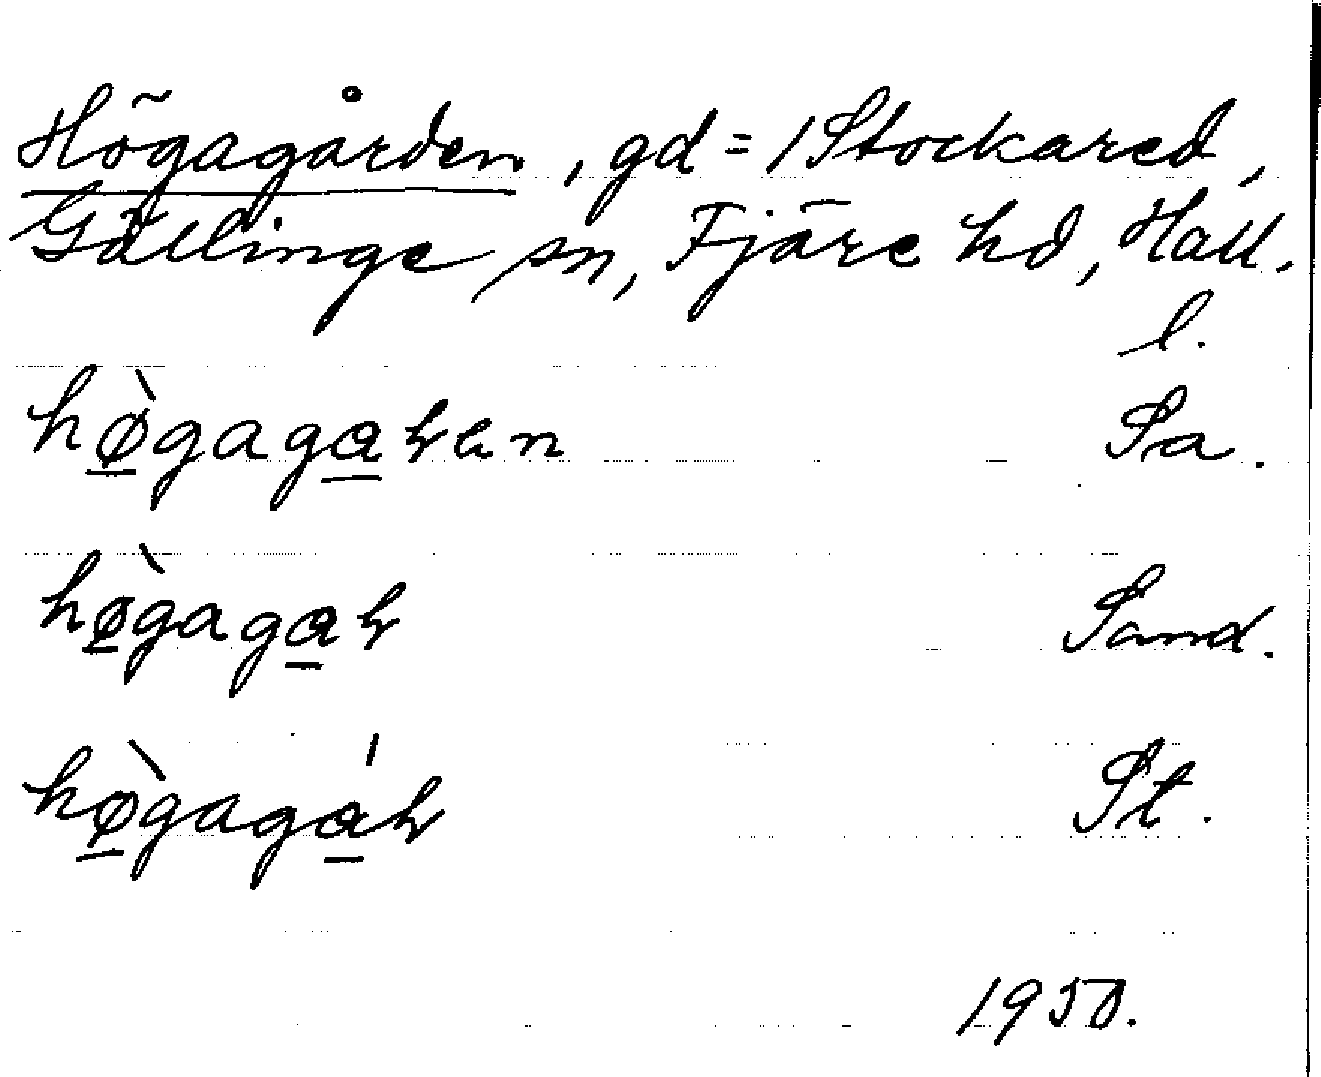 Högagården, gd = 1 Stockared,
Gällinge sn, Fjäre hd, Hall.
l.
hø̀gagaʀen Sa.
hø̀gagaʀ Sand.
hø̀gagáʀ St.
1950.